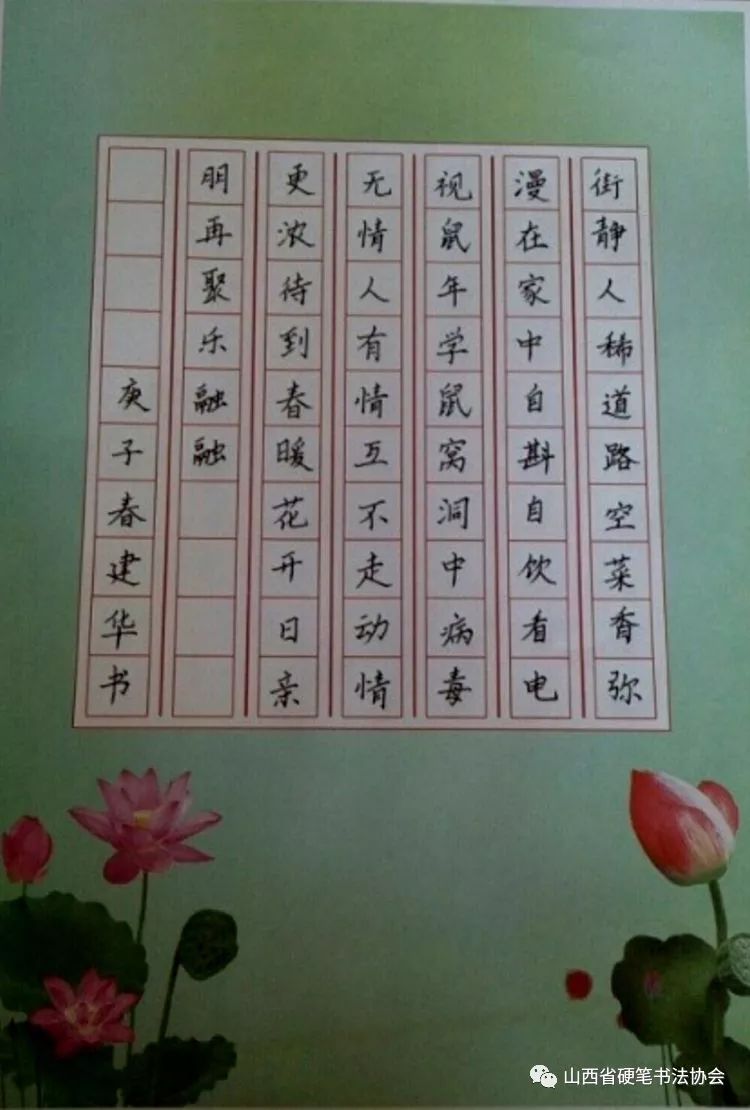 街静人稀道路空菜香弥
漫在家中自斟自饮看电
视鼠年学鼠窝洞中病毒
无情人有情互不走动情
更浓待到春暖花开日亲
朋再聚乐融融
庚子春建华书
山西省硬笔书法协会